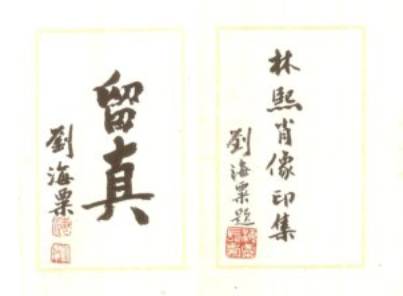 林熙肖像印集
劉海粟題
留真
劉海粟